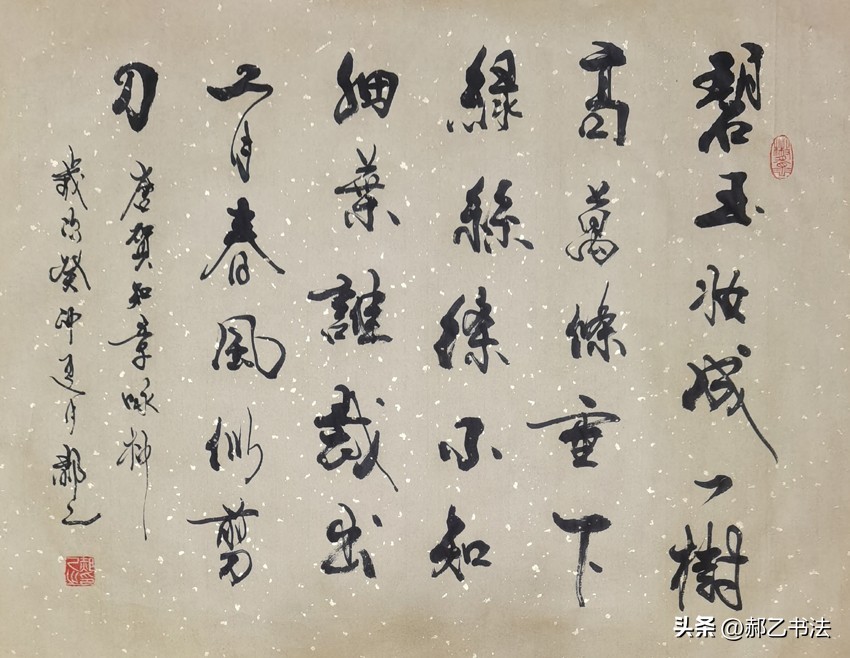 碧玉妆成一樹
高萬條垂下
綠絲絛不知
細葉誰裁出
二月春風似剪
刀 唐賀知章咏柳
歲次癸卯夏月郝乙
头条 @郝乙书法